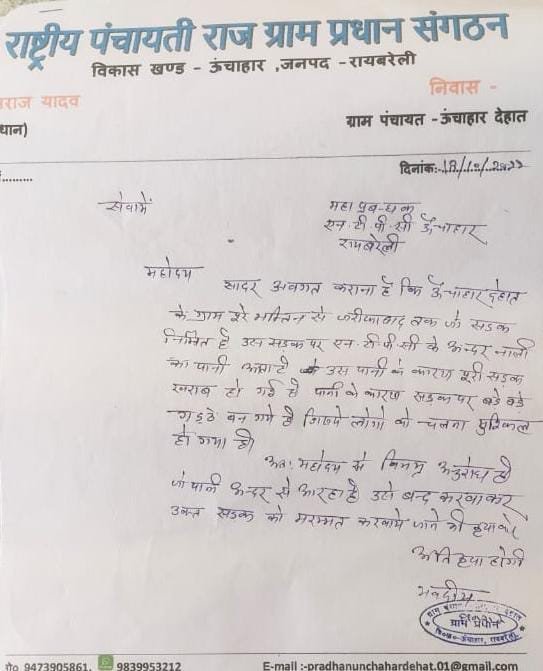 राष्ट्रीय पंचायती राज ग्राम प्रधान संगठन
विकास खण्ड - ऊंचाहार ,जनपद - रायबरेली
राज यादव
निवास -
धान)
ग्राम पंचायत - ऊंचाहार देहात
दिनांक:-18/10/2022
सेवामें
महा प्रबन्धक
एन.टी.पी.सी ऊँचाहार
रायबरेली
महोदय
सादर अवगत कराना है कि ऊँचाहार देहात
के ग्राम पूरे से फरीदाबाद तक जो सडक
निर्मित है उस सडक पर एन.टी.पी.सी के अन्दर नाली
का पानी आता है उस पानी के कारण पूरी सडक
खराब हो गई है पानी के कारण सडक पर बडे बडे
गड्ढे बन गये है जिससे लोगो को चलना मुश्किल
हो गया है।
अतः महोदय से विनम्र अनुरोध है
जो पानी अन्दर से आ रहा है उसे बन्द करवाकर
उक्त सडक को मरम्मत करवाये जाने की कृपा करे
अति कृपा होगी
भवदीय
ग्राम प्रधान
मो० 9473905861, 9839953212
E-mail :-pradhanunchahardehat.01@gmail.com